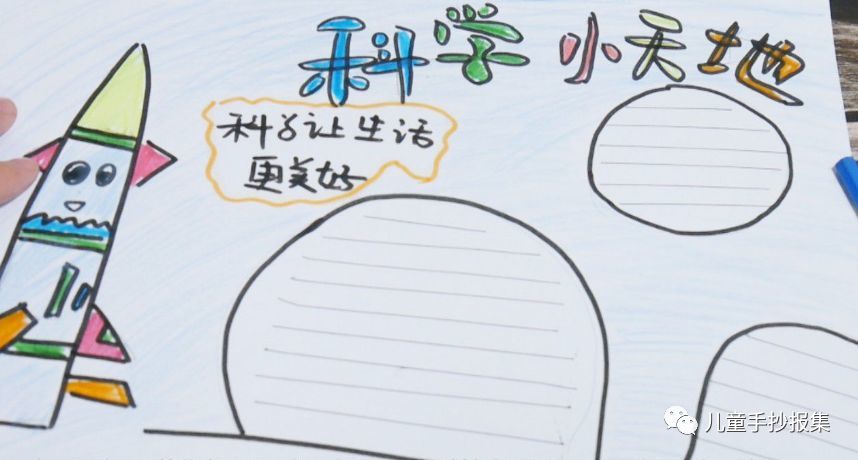 科学小天地
科学让生活
更美好
儿童手抄报集